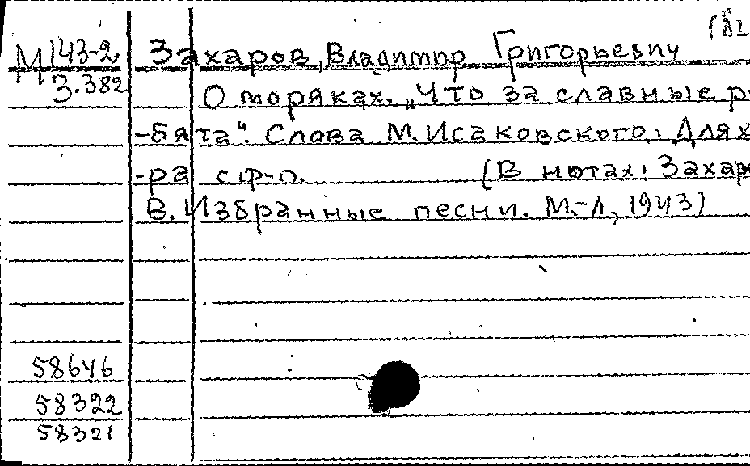 М143-2 Захаров, Владимир Григорьевич
З.382 О моряках. „Что за славные р
-бята". Слова М. Исаковского. Для х
-ра с ф-п. (В нотах: Захар
В. Избранные песни. М.-Л, 1943)
58646
58322
58321